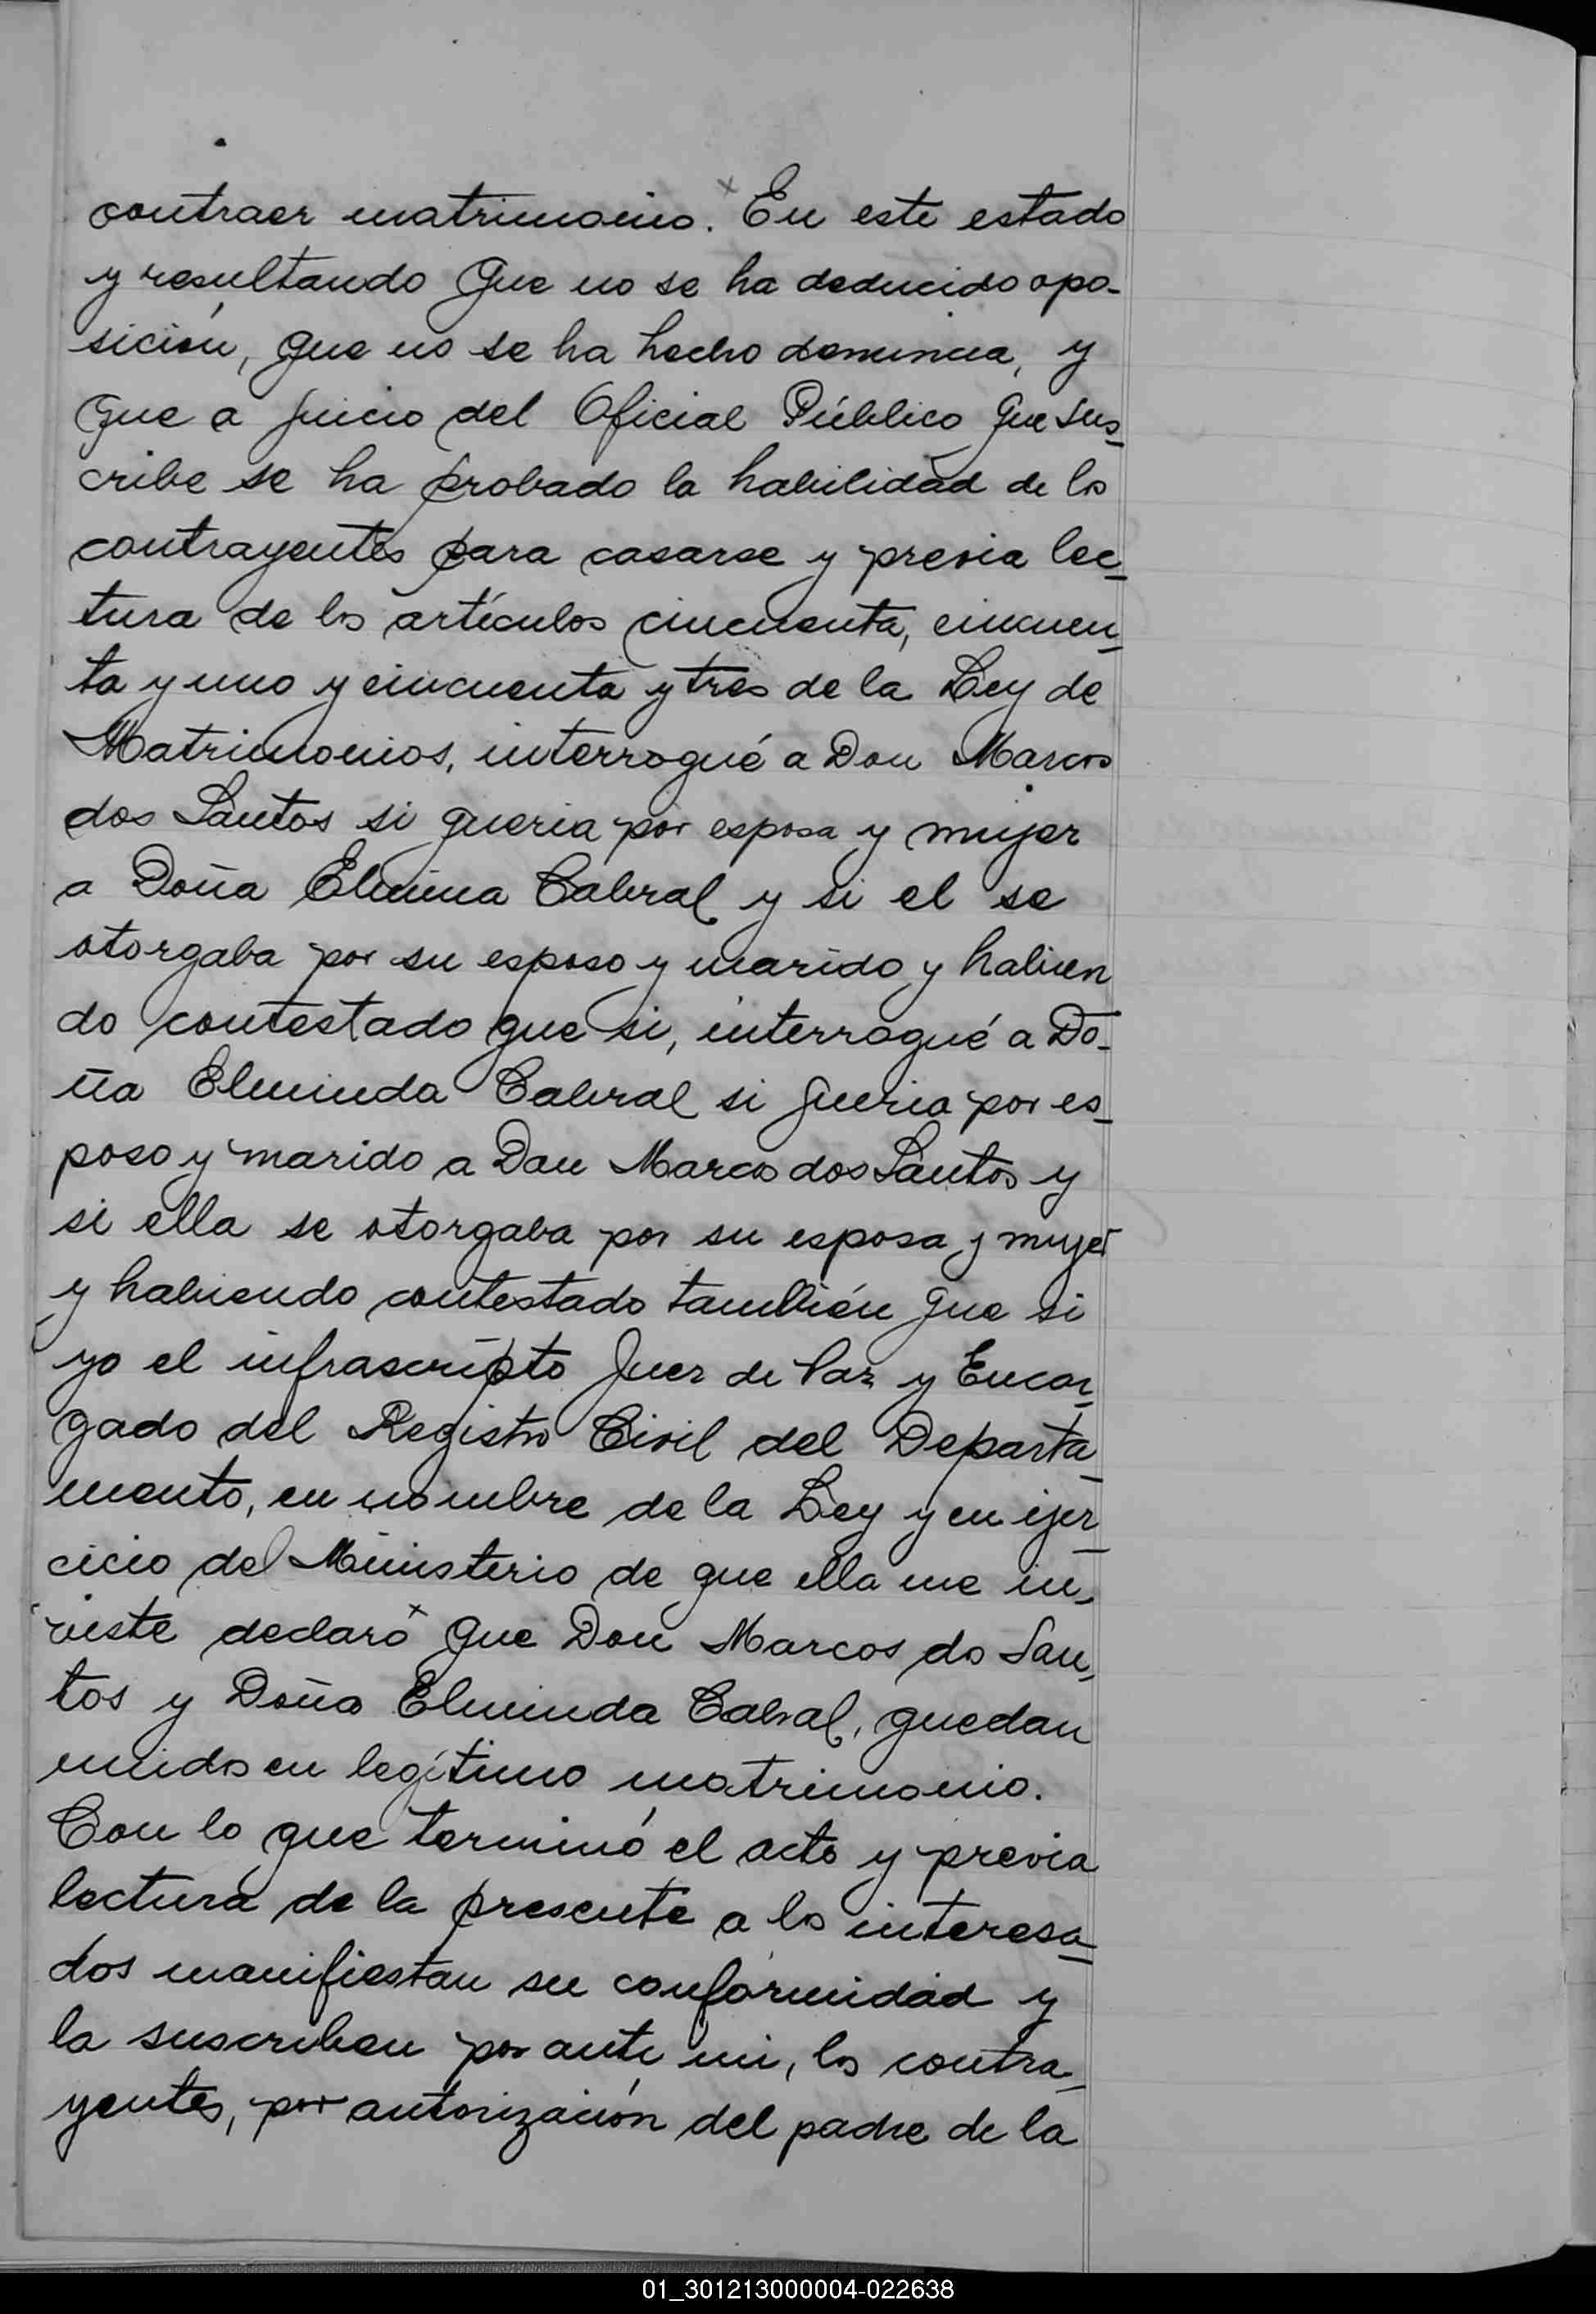 contraer matrimonio. En este estado
y resultando que no se ha deducido opo-
sición, que no se ha hecho denuncia, y
que a juicio del Oficial Público que sus-
cribe se ha probado la habilidad de los
contrayentes para casarse y previa lec-
tura de los artículos cincuenta, cincuen-
ta y uno y cincuenta y tres de la Ley de
Matrimonios, interrogué a Don Marcos
dos Santos si queria por esposa y mujer
a Doña Elminia Cabral y si el se
otorgaba por su esposo y marido y habien
do contestado que si, interrogué a Do-
ña Elminda Cabral si queria por es-
poso y marido a Don Marcos dos Santos y
si ella se otorgaba por su esposa y mujer
y habiendo contestado también que si
yo el infrascripto Juez de Paz y Encar-
gado del Registro Civil del Departa-
mento, en nombre de la Ley y en ejer-
cicio del Ministerio de que ella me in-
viste declaro que Don Marcos do San-
tos y Doña Elminda Cabral, quedan
unidos en legítimo matrimonio.
Con lo que terminó el acto y previa
lectura de la presente a los interesa-
dos manifiestan su conformidad y
la suscriben por ante mi, los contra-
yentes, por autorización del padre de la
01_301213000004-022638